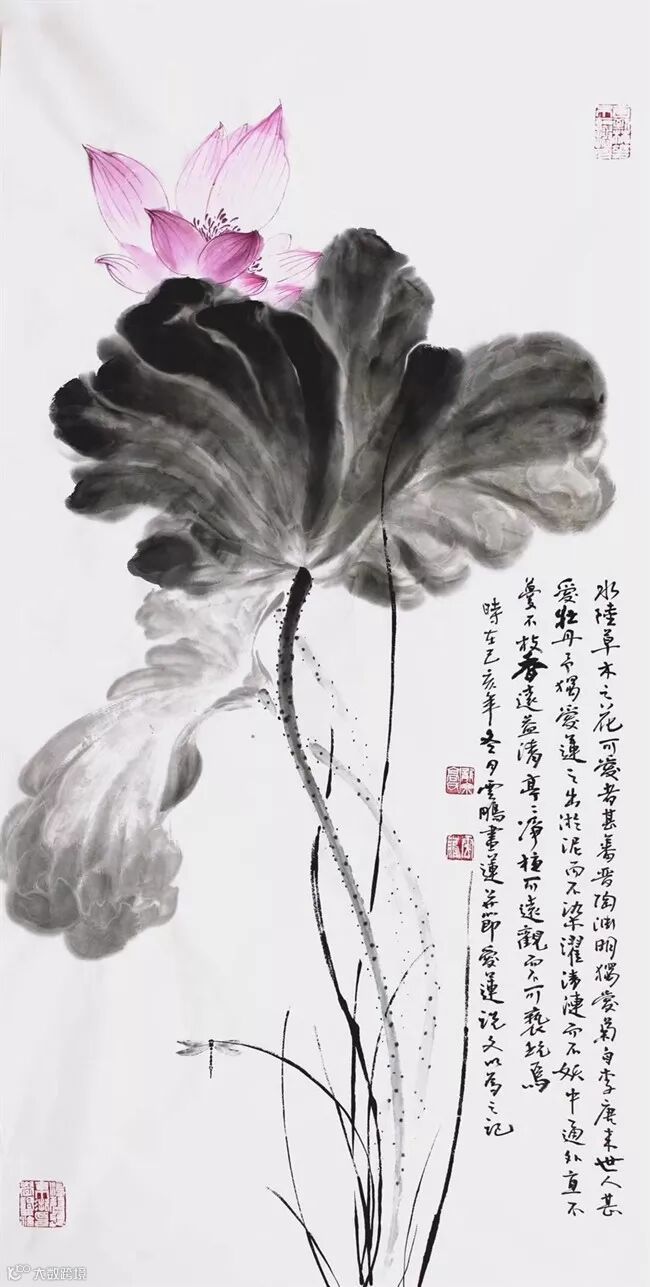 水陸草木之花可愛者甚蕃晉陶淵明獨愛菊自李唐来世人甚
愛牡丹予獨愛蓮之出淤泥而不染濯清漣而不妖中通外直不
蔓不枝香遠益清亭〻淨植可遠觀而不可褻玩焉
時在己亥年冬月雲鵬畫蓮并節愛蓮説文以為之記
大数跨境